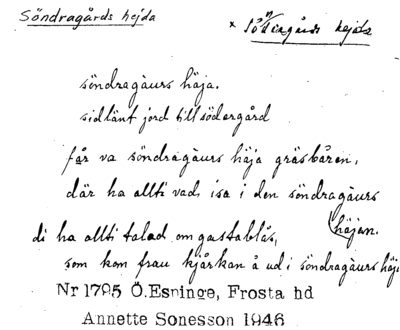 Söndragårds hejda
x Söndergårds hejda
söndragàurs häja.
sidlänt jord till södergård
får va söndragàurs häja gräsbåren,
där ha allti vad, isa i den söndragàurs
häjan.
di ha allti talad om gastablås,
som kom frau kjårkan å ud i söndragàurs häja
Nr 1795 Ö.Espinge, Frosta hd
Annette Sonesson 1946